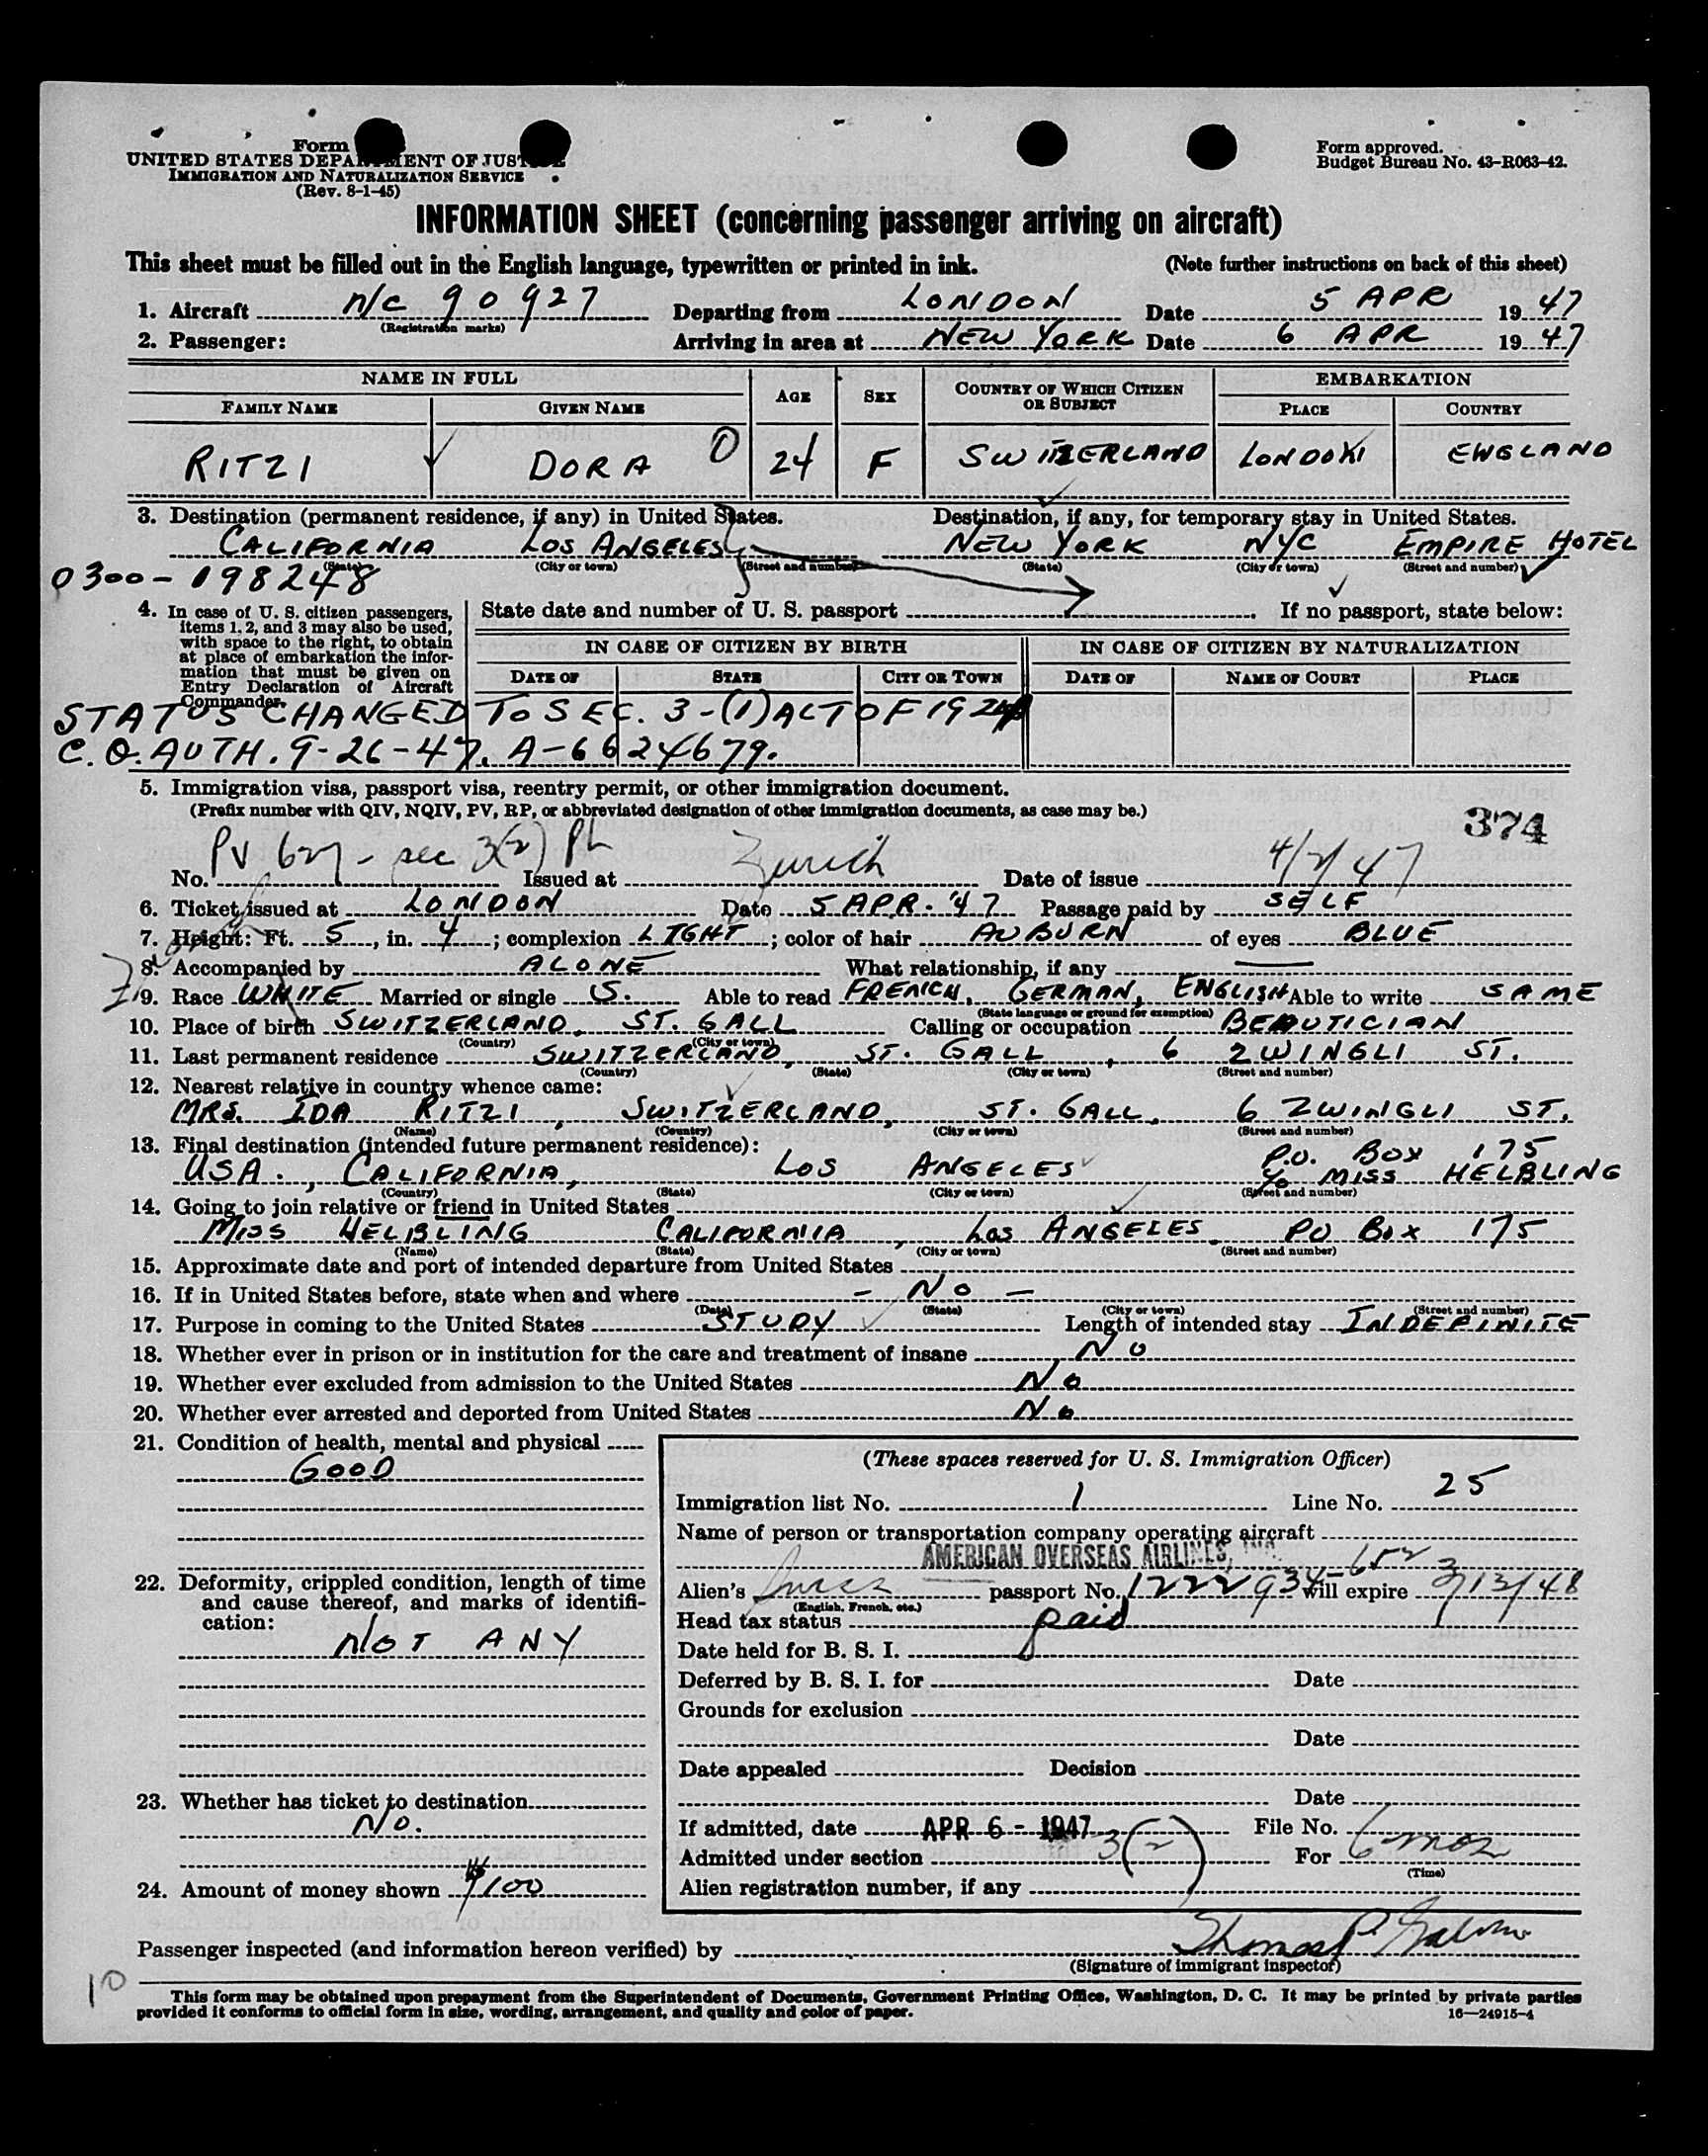 Form
UNITED STATES DEPARTMENT OF JUSTICE
IMMIGRATION AND NATURALIZATION SERVICE
(Rev. 8-1-45)
Form approved.
Budget Bureau No. 43-R063-42.
INFORMATION SHEET (concerning passenger arriving on aircraft)
This sheet must be filled out in the English language, typewritten or printed in ink. (Note further instructions on back of this sheet)
1. Aircraft N/C 90927 Departing from LONDON Date 5 APR 1947
(Registration marks)
2. Passenger: Arriving in area at NEW YORK Date 6 APR 1947
NAME IN FULL AGE SEX COUNTRY OF WHICH CITIZEN OR SUBJECT EMBARKATION
FAMILY NAME GIVEN NAME PLACE COUNTRY
RITZI DORA 0 24 F SWITZERLAND LONDON ENGLAND
3. Destination (permanent residence, if any) in United States. Destination, if any, for temporary stay in United States.
CALIFORNIA LOS ANGELES NEW YORK NYC EMPIRE HOTEL
(State) (City or town) (Street and number) (State) (City or town) (Street and number)
0300-198248
4. In case of U. S. citizen passengers, items 1, 2, and 3 may also be used, with space to the right, to obtain at place of embarkation the information that must be given on Entry Declaration of Aircraft Commander.
State date and number of U. S. passport If no passport, state below:
IN CASE OF CITIZEN BY BIRTH IN CASE OF CITIZEN BY NATURALIZATION
DATE OF STATE CITY OR TOWN DATE OF NAME OF COURT PLACE
STATUS CHANGED TO SEC. 3-(1) ACT OF 1924
C.O. AUTH. 9-26-47. A-6624679.
5. Immigration visa, passport visa, reentry permit, or other immigration document.
(Prefix number with QIV, NQIV, PV, RP, or abbreviated designation of other immigration documents, as case may be.)
374
No. PV 627 - sec 3(2) PL Issued at Zurich Date of issue 4/2/47
6. Ticket issued at LONDON Date 5 APR. '47 Passage paid by SELF
7. Height: Ft. 5, in. 4; complexion LIGHT; color of hair AUBURN of eyes BLUE
8. Accompanied by ALONE What relationship, if any —
9. Race WHITE Married or single S. Able to read FRENCH, GERMAN, ENGLISH Able to write SAME
(State language or ground for exemption)
10. Place of birth SWITZERLAND, ST. GALL Calling or occupation BEAUTICIAN
(Country) (City or town)
11. Last permanent residence SWITZERLAND, ST. GALL, 6 ZWINGLI ST.
(Country) (State) (City or town) (Street and number)
12. Nearest relative in country whence came:
MRS. IDA RITZI, SWITZERLAND, ST. GALL, 6 ZWINGLI ST.
(Name) (Country) (City or town) (Street and number)
13. Final destination (intended future permanent residence): P.O. BOX 175
USA., CALIFORNIA, LOS ANGELES c/o MISS HELBLING
(Country) (State) (City or town) (Street and number)
14. Going to join relative or friend in United States
MISS HELBLING CALIFORNIA, LOS ANGELES. PO BOX 175
(Name) (State) (City or town) (Street and number)
15. Approximate date and port of intended departure from United States
16. If in United States before, state when and where - NO -
(Date) (State) (City or town) (Street and number)
17. Purpose in coming to the United States STUDY Length of intended stay INDEFINITE
18. Whether ever in prison or in institution for the care and treatment of insane NO
19. Whether ever excluded from admission to the United States NO
20. Whether ever arrested and deported from United States NO
21. Condition of health, mental and physical
GOOD
22. Deformity, crippled condition, length of time and cause thereof, and marks of identification:
NOT ANY
23. Whether has ticket to destination
NO.
24. Amount of money shown $100
(These spaces reserved for U. S. Immigration Officer)
Immigration list No. 1 Line No. 25
Name of person or transportation company operating aircraft
AMERICAN OVERSEAS AIRLINES, INC.
Alien's Swiss passport No. 1222934-652 Will expire 3/13/48
(English, French, etc.)
Head tax status paid
Date held for B. S. I.
Deferred by B. S. I. for Date
Grounds for exclusion
Date
Date appealed Decision
Date
If admitted, date APR 6 - 1947 File No.
Admitted under section 3(2) For 6 mos
(Time)
Alien registration number, if any
Passenger inspected (and information hereon verified) by Thomas P.
(Signature of immigrant inspector)
10
This form may be obtained upon prepayment from the Superintendent of Documents, Government Printing Office, Washington, D. C. It may be printed by private parties
provided it conforms to official form in size, wording, arrangement, and quality and color of paper. 16—24915-4